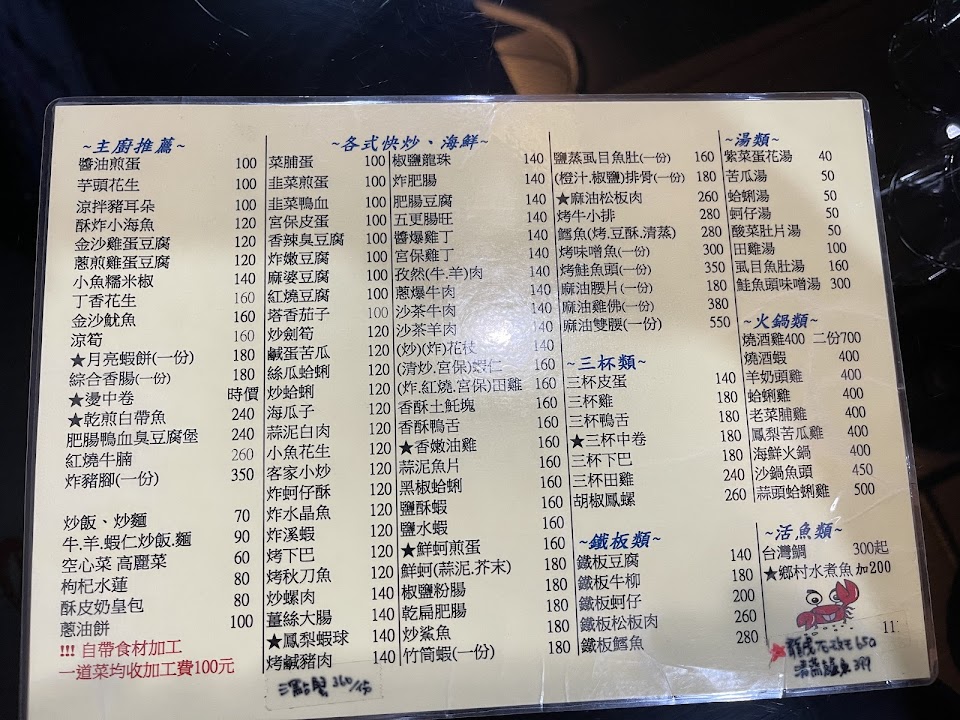 ~主廚推薦~
醬油煎蛋 100
芋頭花生 100
涼拌豬耳朵 100
酥炸小海魚 120
金沙雞蛋豆腐 120
蔥煎雞蛋豆腐 120
小魚糯米椒 140
丁香花生 160
金沙魷魚 160
涼筍 160
★月亮蝦餅(一份) 180
綜合香腸(一份) 180
★燙中卷 時價
★乾煎白帶魚 240
肥腸鴨血臭豆腐煲 240
紅燒牛腩 260
炸豬腳(一份) 350
炒飯、炒麵 70
牛.羊.蝦仁炒飯.麵 90
空心菜 高麗菜 60
枸杞水蓮 80
酥皮奶皇包 80
蔥油餅 100
!!! 自帶食材加工
一道菜均收加工費100元
~各式快炒、海鮮~
菜脯蛋 100
韭菜煎蛋 100
韭菜鴨血 100
宮保皮蛋 100
香辣臭豆腐 100
炸嫩豆腐 100
麻婆豆腐 100
紅燒豆腐 100
塔香茄子 100
炒劍筍 120
鹹蛋苦瓜 120
絲瓜蛤蜊 120
炒蛤蜊 120
海瓜子 120
蒜泥白肉 120
小魚花生 120
客家小炒 120
炸蚵仔酥 120
炸水晶魚 120
炸溪蝦 120
烤下巴 120
烤秋刀魚 120
炒螺肉 140
薑絲大腸 140
★鳳梨蝦球 140
烤鹹豬肉 140
360/份
椒鹽龍珠 140
炸肥腸 140
肥腸豆腐 140
五更腸旺 140
醬爆雞丁 140
宮保雞丁 140
孜然(牛.羊)肉 140
蔥爆牛肉 140
沙茶牛肉 140
沙茶羊肉 140
(炒)(炸)花枝 140
(清炒.宮保)蝦仁 160
(炸.紅燒.宮保)田雞 160
香酥土魠塊 160
香酥鴨舌 160
★香嫩油雞 160
蒜泥魚片 160
黑椒蛤蜊 160
鹽酥蝦 160
鹽水蝦 160
★鮮蚵煎蛋 160
鮮蚵(蒜泥.芥末) 180
椒鹽粉腸 180
乾扁肥腸 180
炒鯊魚 180
竹筒蝦(一份) 180
鹽蒸虱目魚肚(一份) 160
(橙汁.椒鹽)排骨(一份) 180
★麻油松板肉 260
烤牛小排 280
鱈魚(烤.豆酥.清蒸) 280
烤味噌魚(一份) 300
烤鮭魚頭(一份) 350
麻油腰片(一份) 350
麻油雞佛(一份) 380
麻油雙腰(一份) 550
~三杯類~
三杯皮蛋 140
三杯雞 180
三杯鴨舌 180
★三杯中卷 180
三杯下巴 180
三杯田雞 240
胡椒鳳螺 260
~鐵板類~
鐵板豆腐 140
鐵板牛柳 180
鐵板蚵仔 200
鐵板松板肉 260
鐵板鱈魚 280
~湯類~
紫菜蛋花湯 40
苦瓜湯 50
蛤蜊湯 50
蚵仔湯 50
酸菜肚片湯 50
田雞湯 100
虱目魚肚湯 160
鮭魚頭味噌湯 300
~火鍋類~
燒酒雞400 二份700
燒酒蝦 400
羊奶頭雞 400
蛤蜊雞 400
老菜脯雞 400
鳳梨苦瓜雞 400
海鮮火鍋 400
沙鍋魚頭 450
蒜頭蛤蜊雞 500
~活魚類~
台灣鯛 300起
★鄉村水煮魚加200
11
★龍虎石斑650
清蒸鱸魚399